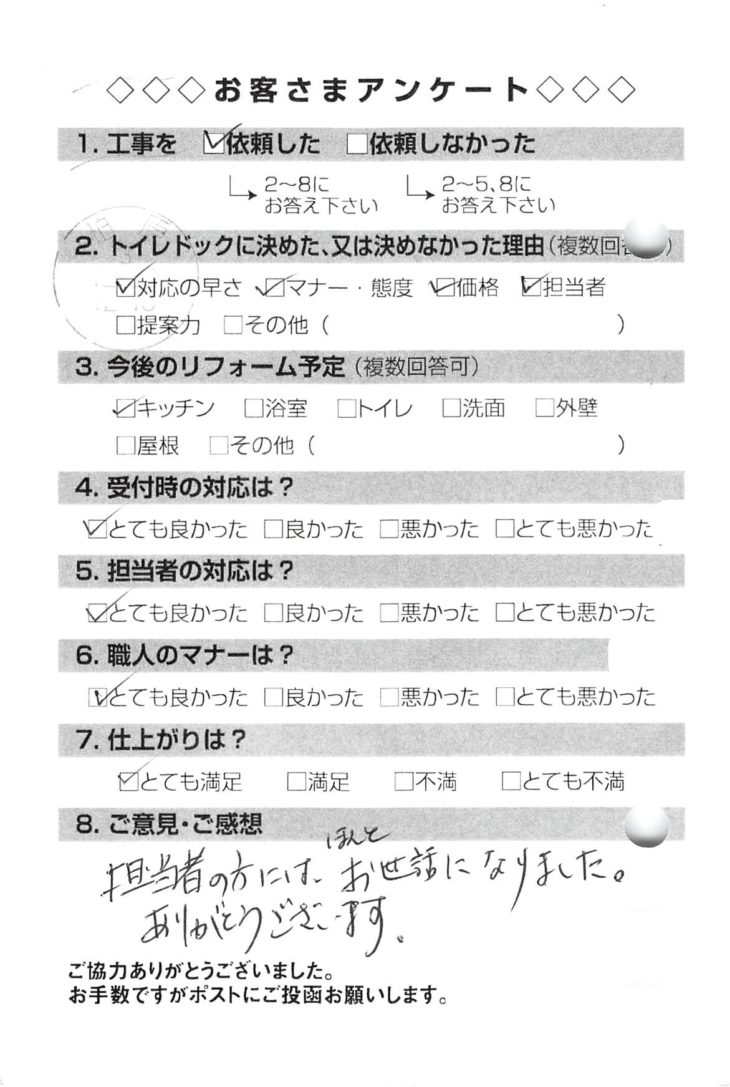 ◇◇◇お客さまアンケート◇◇◇
1. 工事を ☑依頼した □依頼しなかった
2〜8に お答え下さい 2〜5、8に お答え下さい
2. トイレドックに決めた、又は決めなかった理由(複数回
☑対応の早さ ☑マナー・態度 ☑価格 ☑担当者
□提案力 □その他 ( )
3. 今後のリフォーム予定(複数回答可)
☑キッチン □浴室 □トイレ □洗面 □外壁
□屋根 □その他 ( )
4. 受付時の対応は?
☑とても良かった □良かった □悪かった □とても悪かった
5. 担当者の対応は?
☑とても良かった □良かった □悪かった □とても悪かった
6. 職人のマナーは?
☑とても良かった □良かった □悪かった □とても悪かった
7. 仕上がりは?
☑とても満足 □満足 □不満 □とても不満
8. ご意見・ご感想
ほんと
担当者の方には、お世話になりました。
ありがとうございます。
ご協力ありがとうございました。
お手数ですがポストにご投函お願いします。